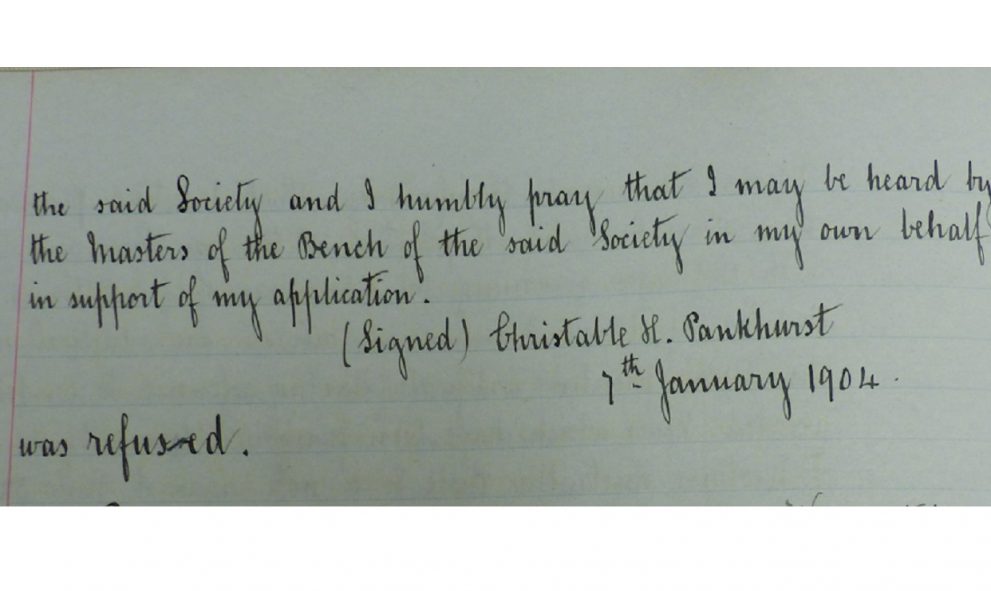 the said Society and I humbly pray that I may be heard by
the Masters of the Bench of the said Society in my own behalf
in support of my application.
(Signed) Christable H. Pankhurst
7th January 1904.
was refused.